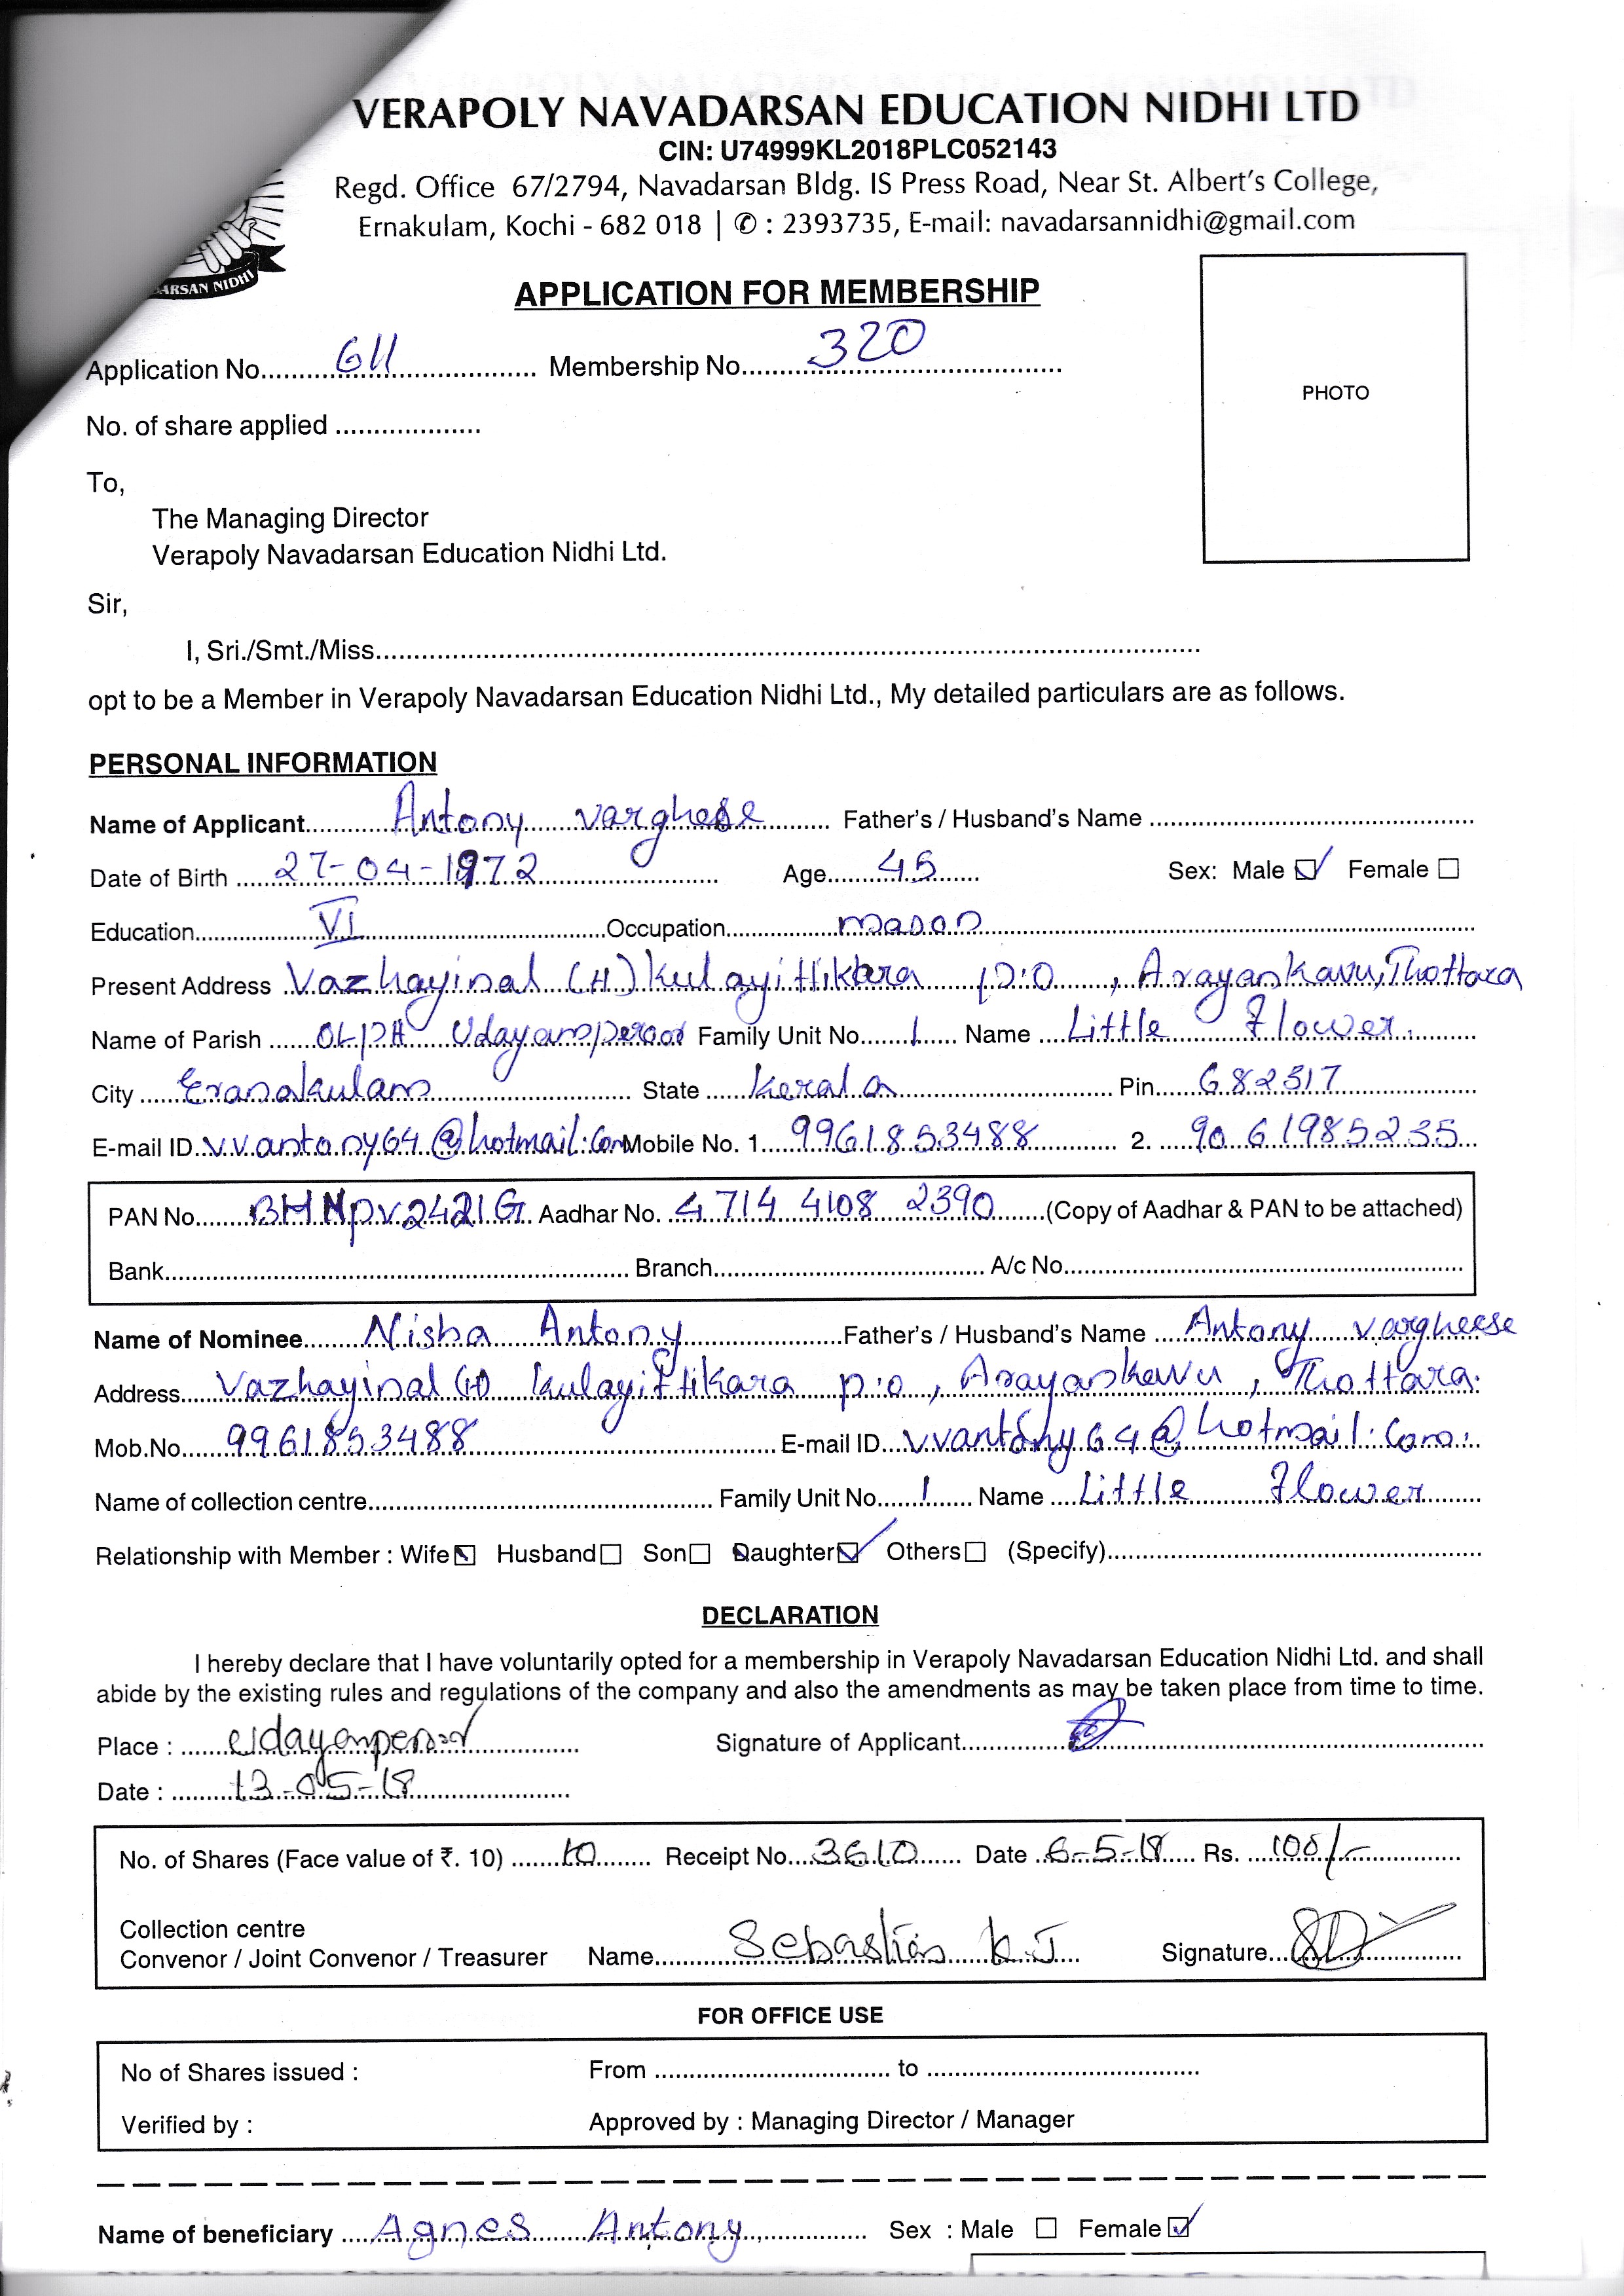 VERAPOLY NAVADARSAN EDUCATION NIDHI LTD
CIN: U74999KL2018PLC052143
Regd. Office 67/2794, Navadarsan Bldg. IS Press Road, Near St. Albert's College,
Ernakulam, Kochi - 682 018 | ✆ : 2393735, E-mail: navadarsannidhi@gmail.com
ARSAN NIDHI
APPLICATION FOR MEMBERSHIP
Application No. 611 Membership No. 320
PHOTO
No. of share applied
To,
The Managing Director
Verapoly Navadarsan Education Nidhi Ltd.
Sir,
I, Sri./Smt./Miss
opt to be a Member in Verapoly Navadarsan Education Nidhi Ltd., My detailed particulars are as follows.
PERSONAL INFORMATION
Name of Applicant Antony varghese Father's / Husband's Name
Date of Birth 27-04-1972 Age 45 Sex: Male ☑ Female ☐
Education VI Occupation mason
Present Address Vazhayinal (H) kulayittikkara P.O , Arayankavu, Thottara
Name of Parish OLPH Udayamperoor Family Unit No. 1 Name Little Flower
City Eranakulam State Kerala Pin 682317
E-mail ID v.v.antony64@hotmail.com Mobile No. 1. 9961853488 2. 9061985235
PAN No. BHNPV2421G Aadhar No. 4714 4108 2390 (Copy of Aadhar & PAN to be attached)
Bank Branch A/c No.
Name of Nominee Nisha Antony Father's / Husband's Name Antony vargheese
Address Vazhayinal (H) kulayittikara p.o, Arayankavu, Thottara.
Mob.No. 9961853488 E-mail ID vvantony64@hotmail.com
Name of collection centre Family Unit No. 1 Name Little Flower
Relationship with Member : Wife ☑ Husband ☐ Son ☐ Daughter ☑ Others ☐ (Specify)
DECLARATION
I hereby declare that I have voluntarily opted for a membership in Verapoly Navadarsan Education Nidhi Ltd. and shall
abide by the existing rules and regulations of the company and also the amendments as may be taken place from time to time.
Place : Udayamperoor Signature of Applicant
Date : 13-05-18
No. of Shares (Face value of ₹. 10) 10 Receipt No. 3610 Date 6-5-18 Rs. 100/-
Collection centre
Convenor / Joint Convenor / Treasurer Name Sebastian K.J Signature
FOR OFFICE USE
No of Shares issued : From to
Verified by : Approved by : Managing Director / Manager
Name of beneficiary Agnes Antony Sex : Male ☐ Female ☑